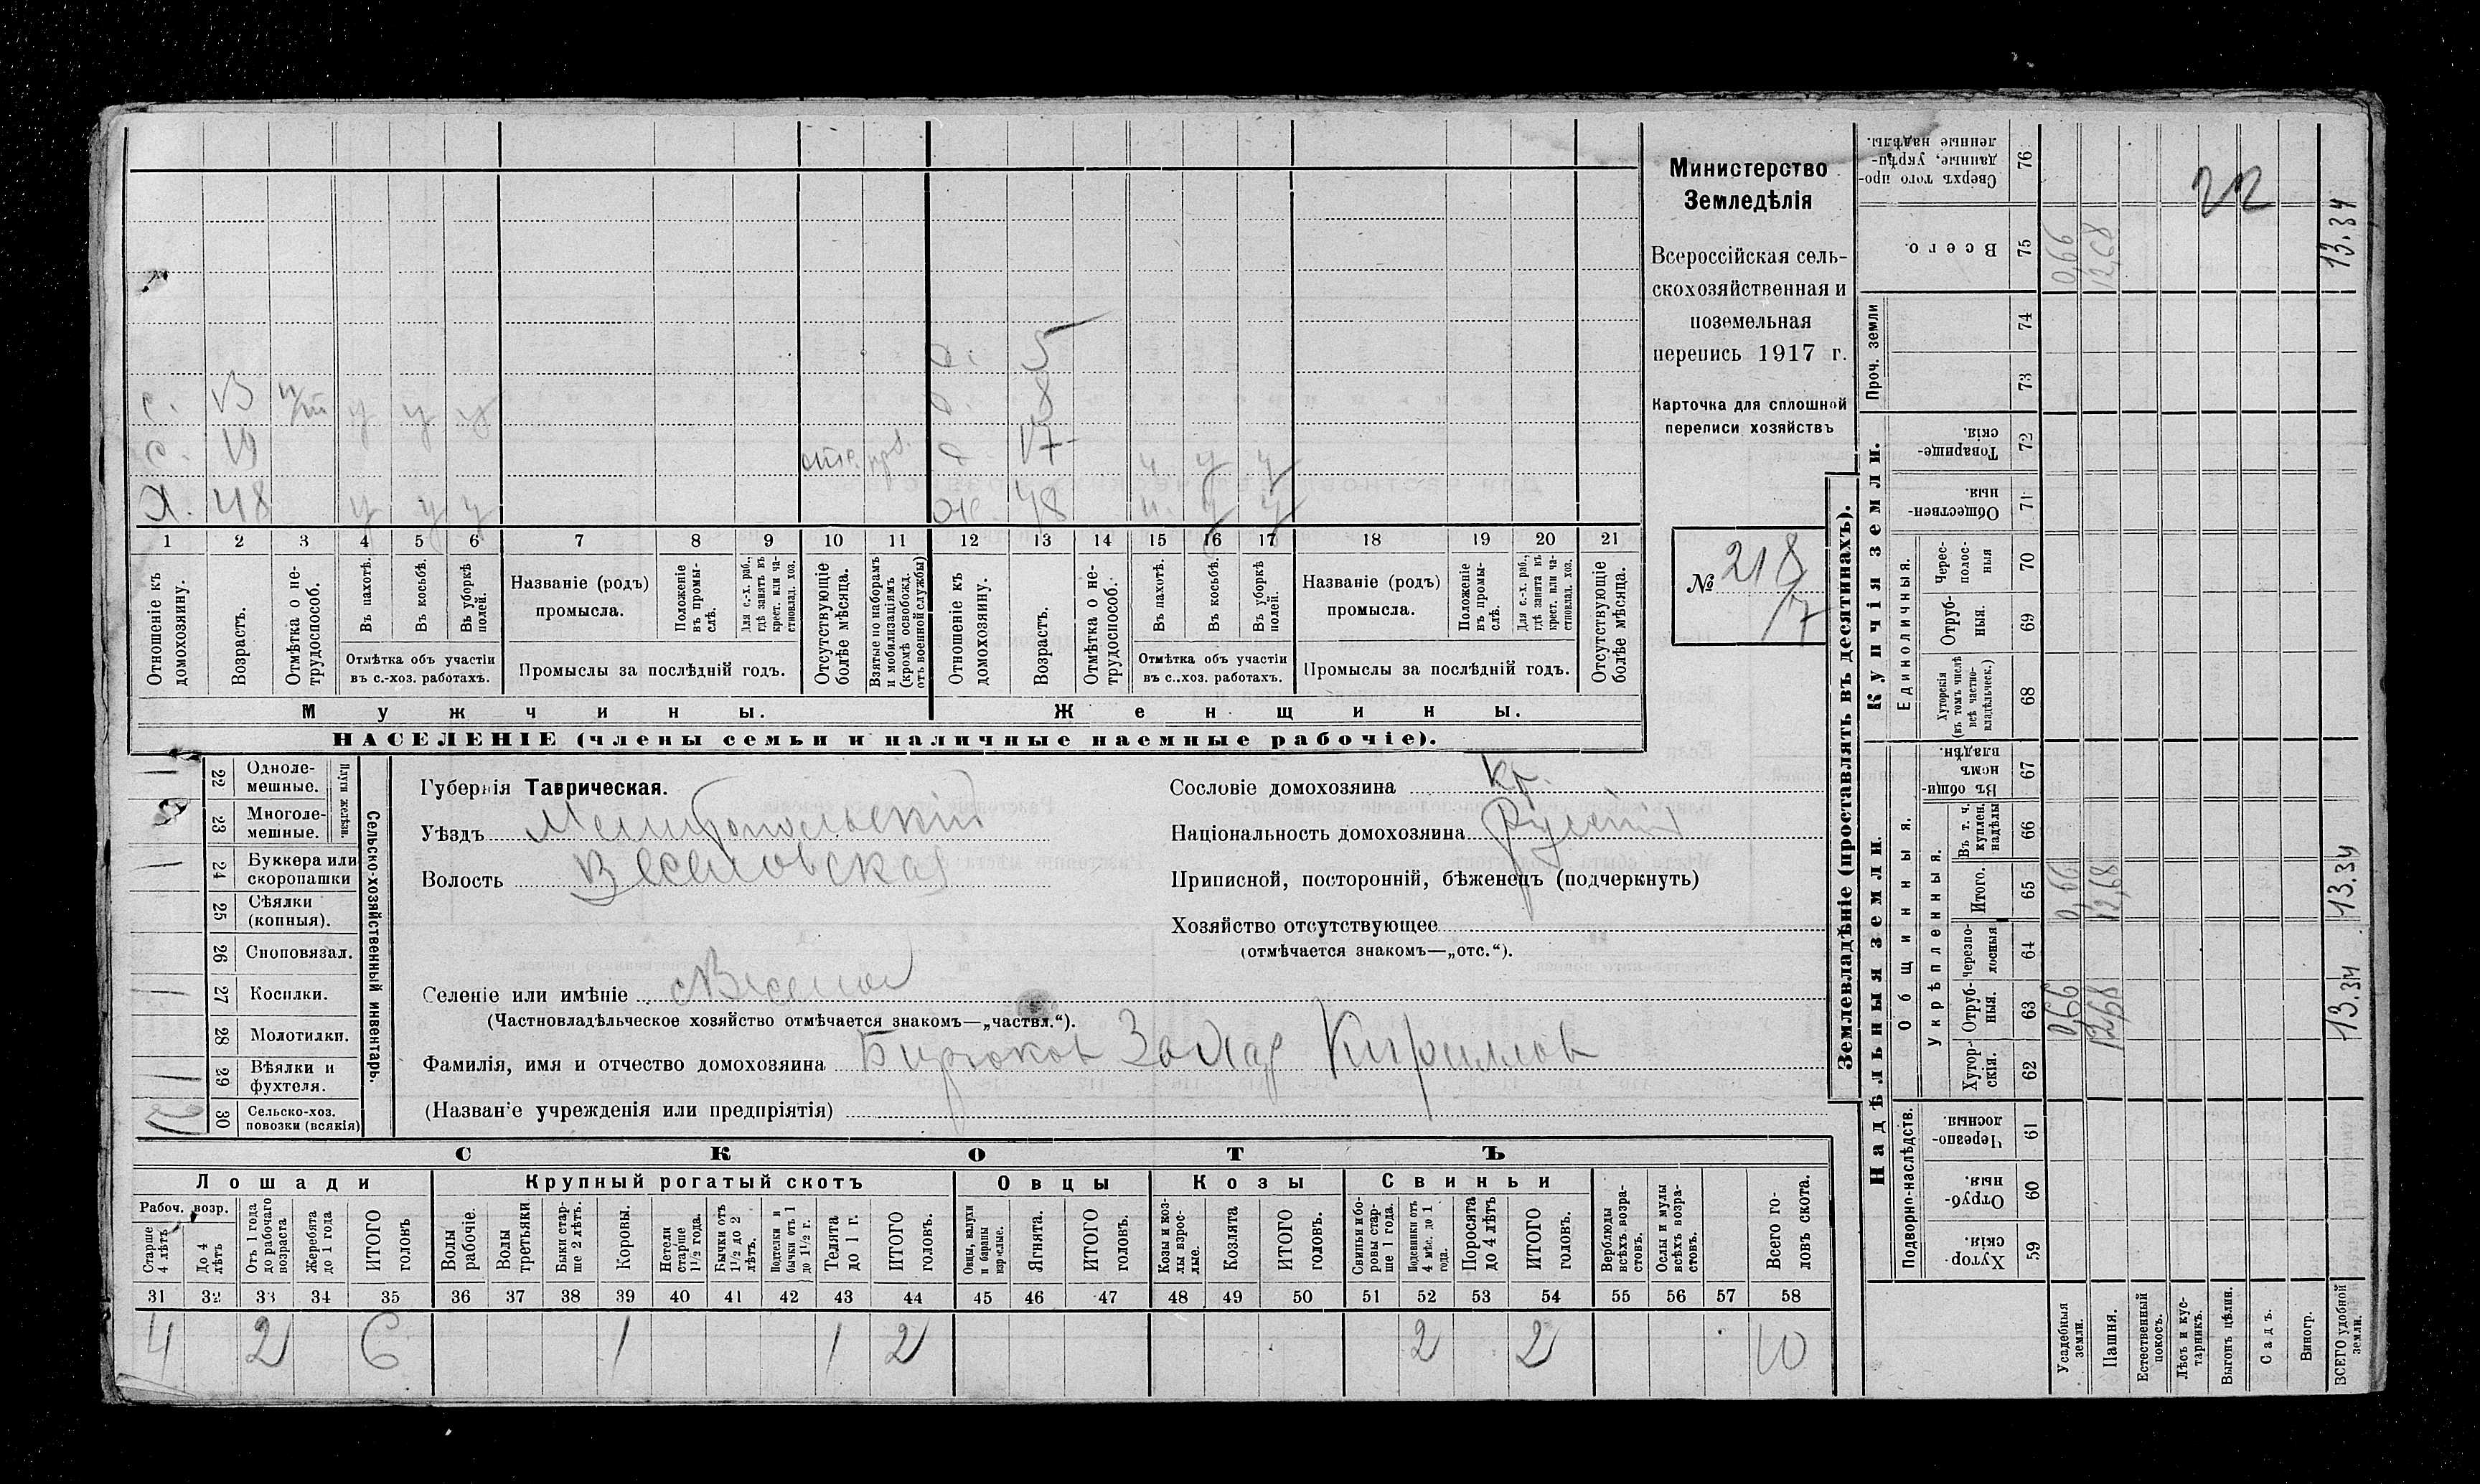 с. 13 п/т у у у
с. 19
Х. 48 у у у
д. 5
д. 8
д. 17 у у
ж. 48 у у
1 2 3 4 5 6 7 8 9 10 11 12 13 14 15 16 17 18 19 20 21
Отношеніе къ домохозяину.
Возрастъ.
Отмѣтка о нетрудоспособ.
Въ пахотѣ.
Въ косьбѣ.
Въ уборкѣ полей.
Отмѣтка объ участіи
въ с.-хоз. работахъ.
Названіе (родъ)
промысла.
Положеніе въ промыслѣ.
Для с.-х. раб., гдѣ занятъ въ крест. или частновлад. хоз.
Промыслы за послѣдній годъ.
Отсутствующіе болѣе мѣсяца.
Взятые по наборамъ и мобилизаціямъ (кромѣ освобожд. отъ военной службы)
Отношеніе къ домохозяину.
Возрастъ.
Отмѣтка о нетрудоспособ.
Въ пахотѣ.
Въ косьбѣ.
Въ уборкѣ полей.
Отмѣтка объ участіи
въ с..хоз. работахъ.
Названіе (родъ)
промысла.
Положеніе въ промыслѣ.
Для с.-х. раб., гдѣ занята въ крест. или частновлад. хоз.
Промыслы за послѣдній годъ.
Отсутствующіе болѣе мѣсяца.
Мужчины. Женщины.
НАСЕЛЕНІЕ (члены семьи и наличные наемные рабочіе).
Министерство
Земледѣлія
Всероссійская сель-
скохозяйственная и
поземельная
перепись 1917 г.
Карточка для сплошной
переписи хозяйствъ
№ 218
17
22 Одноле-
мешные.
23 Многоле-
мешные.
Плуги желѣзн.
24 Буккера или
скоропашки
25 Сѣялки
(конныя).
26 Сноповязал.
27 Косилки.
28 Молотилки.
29 Вѣялки и
фухтеля.
30 Сельско-хоз.
повозки (всякія)
Сельско-хозяйственный инвентарь.
Губернія Таврическая.
Уѣздъ Мелитопольскій
Волость Веселовская
Селеніе или имѣніе с Веселое
(Частновладѣльческое хозяйство отмѣчается знакомъ—„частвл.“).
Фамилія, имя и отчество домохозяина Бирюков Захар Кириллов
(Названіе учрежденія или предпріятія)
Сословіе домохозяина кр.
Національность домохозяина Русскій
Приписной, посторонній, бѣженецъ (подчеркнуть)
Хозяйство отсутствующее
(отмѣчается знакомъ—„отс.“).
СКОТЪ
Лошади Крупный рогатый скотъ Овцы Козы Свиньи
Рабоч. возр.
Старше 4 лѣтъ
До 4 лѣтъ
Отъ 1 года до рабочаго возраста
Жеребята до 1 года
ИТОГО головъ
Волы рабочіе.
Волы третьяки
Быки старше 2 лѣтъ.
Коровы.
Нетели старше 1½ года.
Бычки отъ 1½ до 2 лѣтъ.
Подтелки и бычки отъ 1 до 1½ г.
Телята до 1 г.
ИТОГО головъ.
Овцы, валухи и бараны взрослые.
Ягнята.
ИТОГО головъ.
Козы и козлы взрослые.
Козлята
ИТОГО головъ.
Свиньи и боровы старше 1 года.
Подсвинки отъ 4 мѣс. до 1 года.
Поросята до 4 лѣтъ
ИТОГО головъ.
Верблюды всѣхъ возрастовъ.
Ослы и мулы всѣхъ возрастовъ.
Всего головъ скота.
31 32 33 34 35 36 37 38 39 40 41 42 43 44 45 46 47 48 49 50 51 52 53 54 55 56 57 58
4 2 6 1 1 2 2 2 10
Землевладѣніе (проставлять въ десятинахъ).
Купчія земли.
Надѣльныя земли.
Сверхъ того проданные, укрѣпленные надѣлы. 76
Всего. 75
Проч. земли 74 73
Товарищескія. 72
Общественныя. 71
Единоличныя.
Чересполосныя 70
Отрубныя. 69
Хуторскія (въ томъ числѣ всѣ частновладѣльческ.) 68
Общинныя.
Въ общинномъ владѣн. 67
Укрѣпленныя.
Въ т. ч. куплен. надѣлы 66
Итого. 65
Черезполосныя 64
Отрубныя. 63
Хуторскія. 62
Подворно-наслѣдств.
Черезполосныя 61
Отрубныя. 60
Хуторскія. 59
Усадебныя земли.
0,66 0,66 0,66
Пашня.
12,68 12,68 12,68
Естественный покосъ.
Лѣсъ и кустарникъ.
Выгонъ цѣлин.
Садъ.
Виногр.
ВСЕГО удобной земли.
13.34 13.34 13.34
22